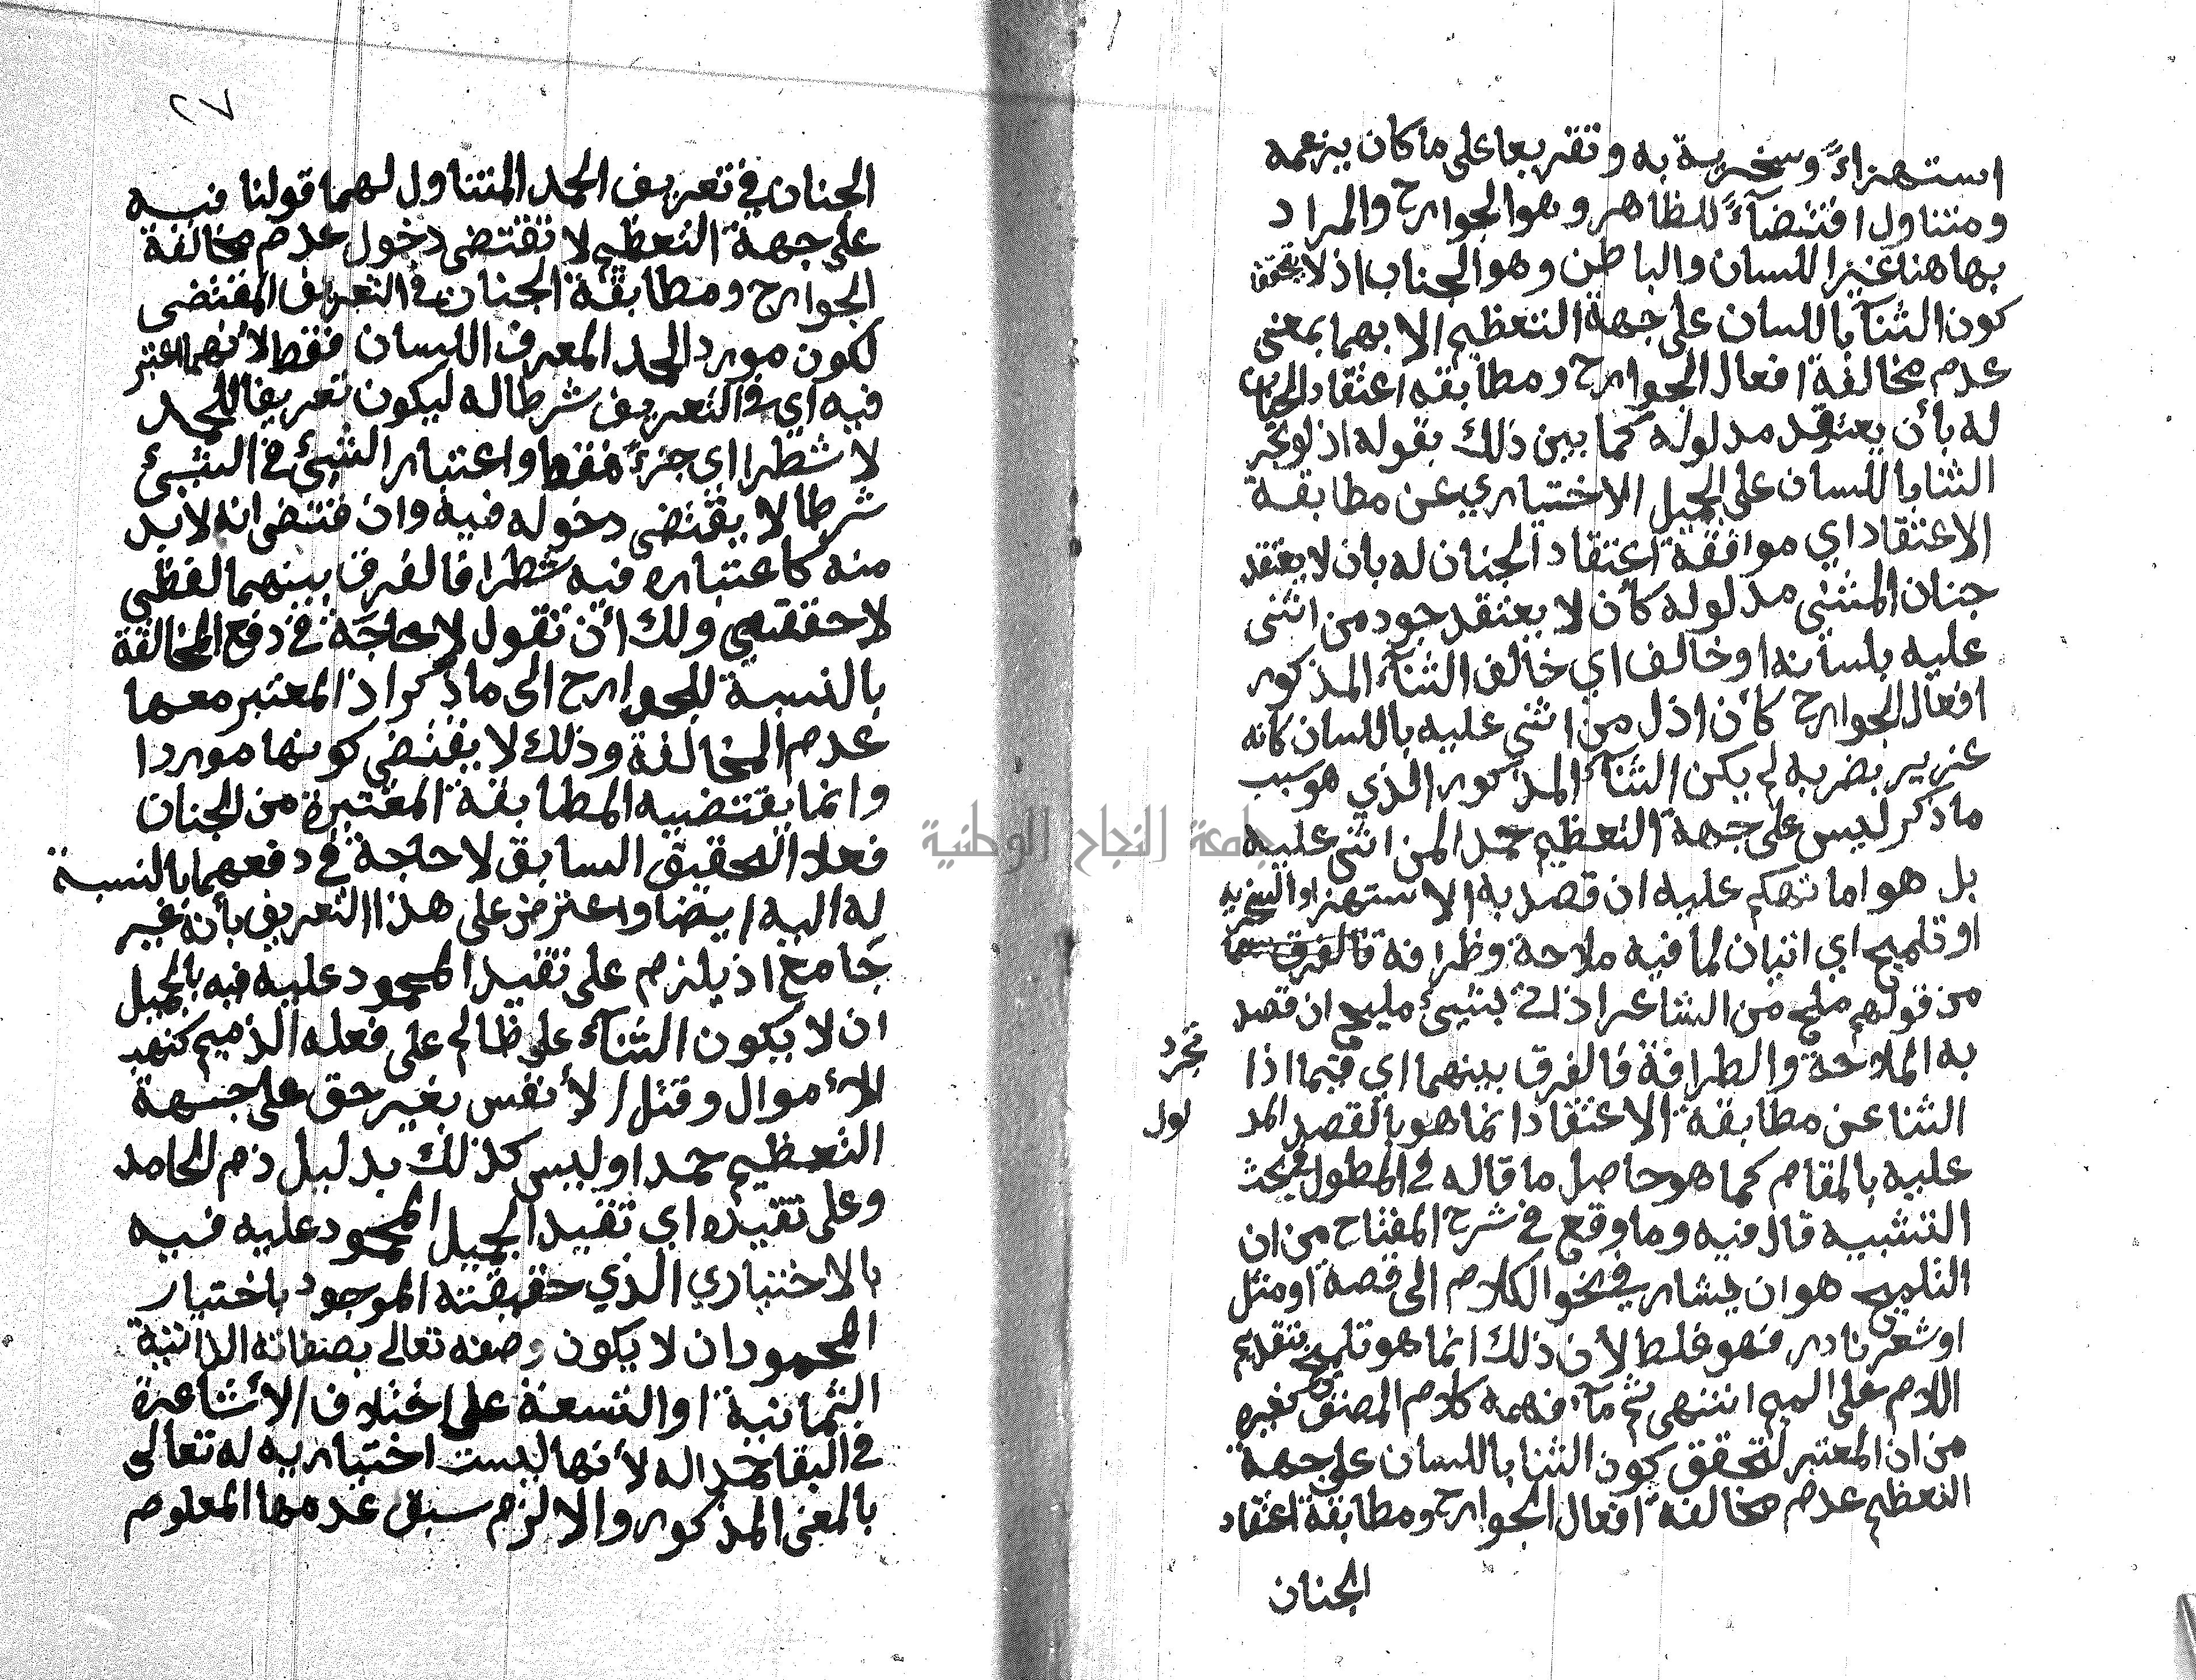 استهزاءً وسخرية به وتقريعا على ما كان يزعمه
ومتناول اقتضآءً للظاهر وهو الجوارح والمراد
بها هنا غير اللسان والباطن وهو الجناب اذ لا يتحقق
كون الثنآ باللسان على جهة التعظيم الا بهما بمعنى
عدم مخالفة افعال الجوارح ومطابقه اعتقاد الجنان
له بأن يعتقد مدلوله كما بين ذلك بقوله اذ لو تجر
الثنا باللسان على الجميل الاختياري عن مطابقة
الاعتقاد اي موافقة اعتقاد الجنان له بان لا يعتقد
جنان المثنى مدلوله كأن لا يعتقد جود من اثنى
عليه بلسانه او خالف اي خالف الثنآء المذكور
افعال الجوارح كأن اذل من اثنى عليه باللسان كانه
عزيز بضربه لم يكن الثنآء المذكور الذي هو سبب
ما ذكر ليس على جهة التعظيم حمدا لمن اثنى عليه
بل هو اما تهكم عليه ان قصد به الاستهزاو السخريه
او تلميح اي اتيان لما فيه ملاحة وظرافة فالفرق
من قولهم ملح من الشاعر اذ اتى بشيئ مليح ان قصد
به الملاحة والظرافة فالفرق بينهما اي فيما اذا تجرد
الثنا عن مطابقة الاعتقاد انما هو بالقصد المدلول
عليه بالمقام كما هو حاصل ما قاله في المطول في بحث
التشبيه قال فيه وما وقع في شرح المفتاح من ان
التلميح هو ان يشار في فحو الكلام الى قصة او مثل
او شعر نادر فهو غلط لأن ذلك انما هو تلميح بتقديم
اللام على الميم انتهى ثم مآ فهمه كلام المصنف كغيره
من ان المعتبر لتحقق كون الثنا باللسان على جهة
التعظيم عدم مخالفة افعال الجوارح ومطابقة اعتقاد
الجنان
٢٧
الجنان في تعريف الحمد المتناول لهما قولنا فيه
على جهة التعظيم لا تقتضى دخول عدم مخالفة
الجوارح ومطابقة الجنان في التعريف المقتضى
لكون مورد الحمد المعرف اللسان فقط لأنهما اعتبر
فيه اي في التعريف شرطا له ليكون تعريفا للحمد
لا شطرا اي جزءً فقط واعتبار الشيئ في الشيئ
شرطا لا يقتضى دخوله فيه وان قتضى انه لابد
منه كاعتباره فيه شطرا فالفرق بينهما لفظي
لا حقيقي ولك أن تقول لا حاجة في دفع المخالفة
بالنسبة للجوارح الى ما ذكر اذ المعتبر معها
عدم المخالفة وذلك لا يقتضي كونها موردا
وانما يقتضيه المطابقة المعتبرة من الجنان
فعلا التحقيق السابق لا حاجة في دفعهما بالنسبة
له اليه ايضا واعترض على هذا التعريف بأنه غير
جامع اذ يلزم على تقيد المحمود عليه فيه بالجميل
ان لا يكون الثنآء على ظالم على فعله الذميم كنهب
الأموال وقتل الأنفس بغير حق على جهة
التعظيم حمدا وليس كذلك بدليل ذم الحامد
وعلى تقيده اي تقيد الجميل المحمود عليه فيه
بالاختياري الذي حقيقته الموجود باختيار
المحمود ان لا يكون وصفه تعالى بصفاته الذاتية
الثمانية او التسعة على اختلاف الأشاعرة
في البقا حمدا له لأنها ليست اختياريه له تعالى
بالمعنى المذكور والا لزم سبق عدمها المعلوم
جامعة النجاح الوطنية